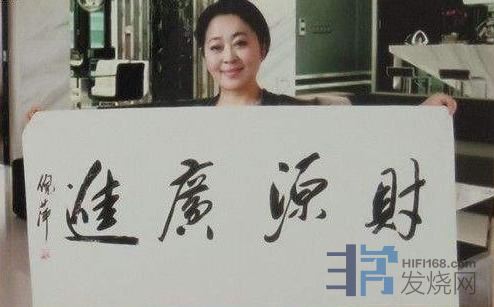 財源廣進
倪萍
HIFI168.com
发烧网